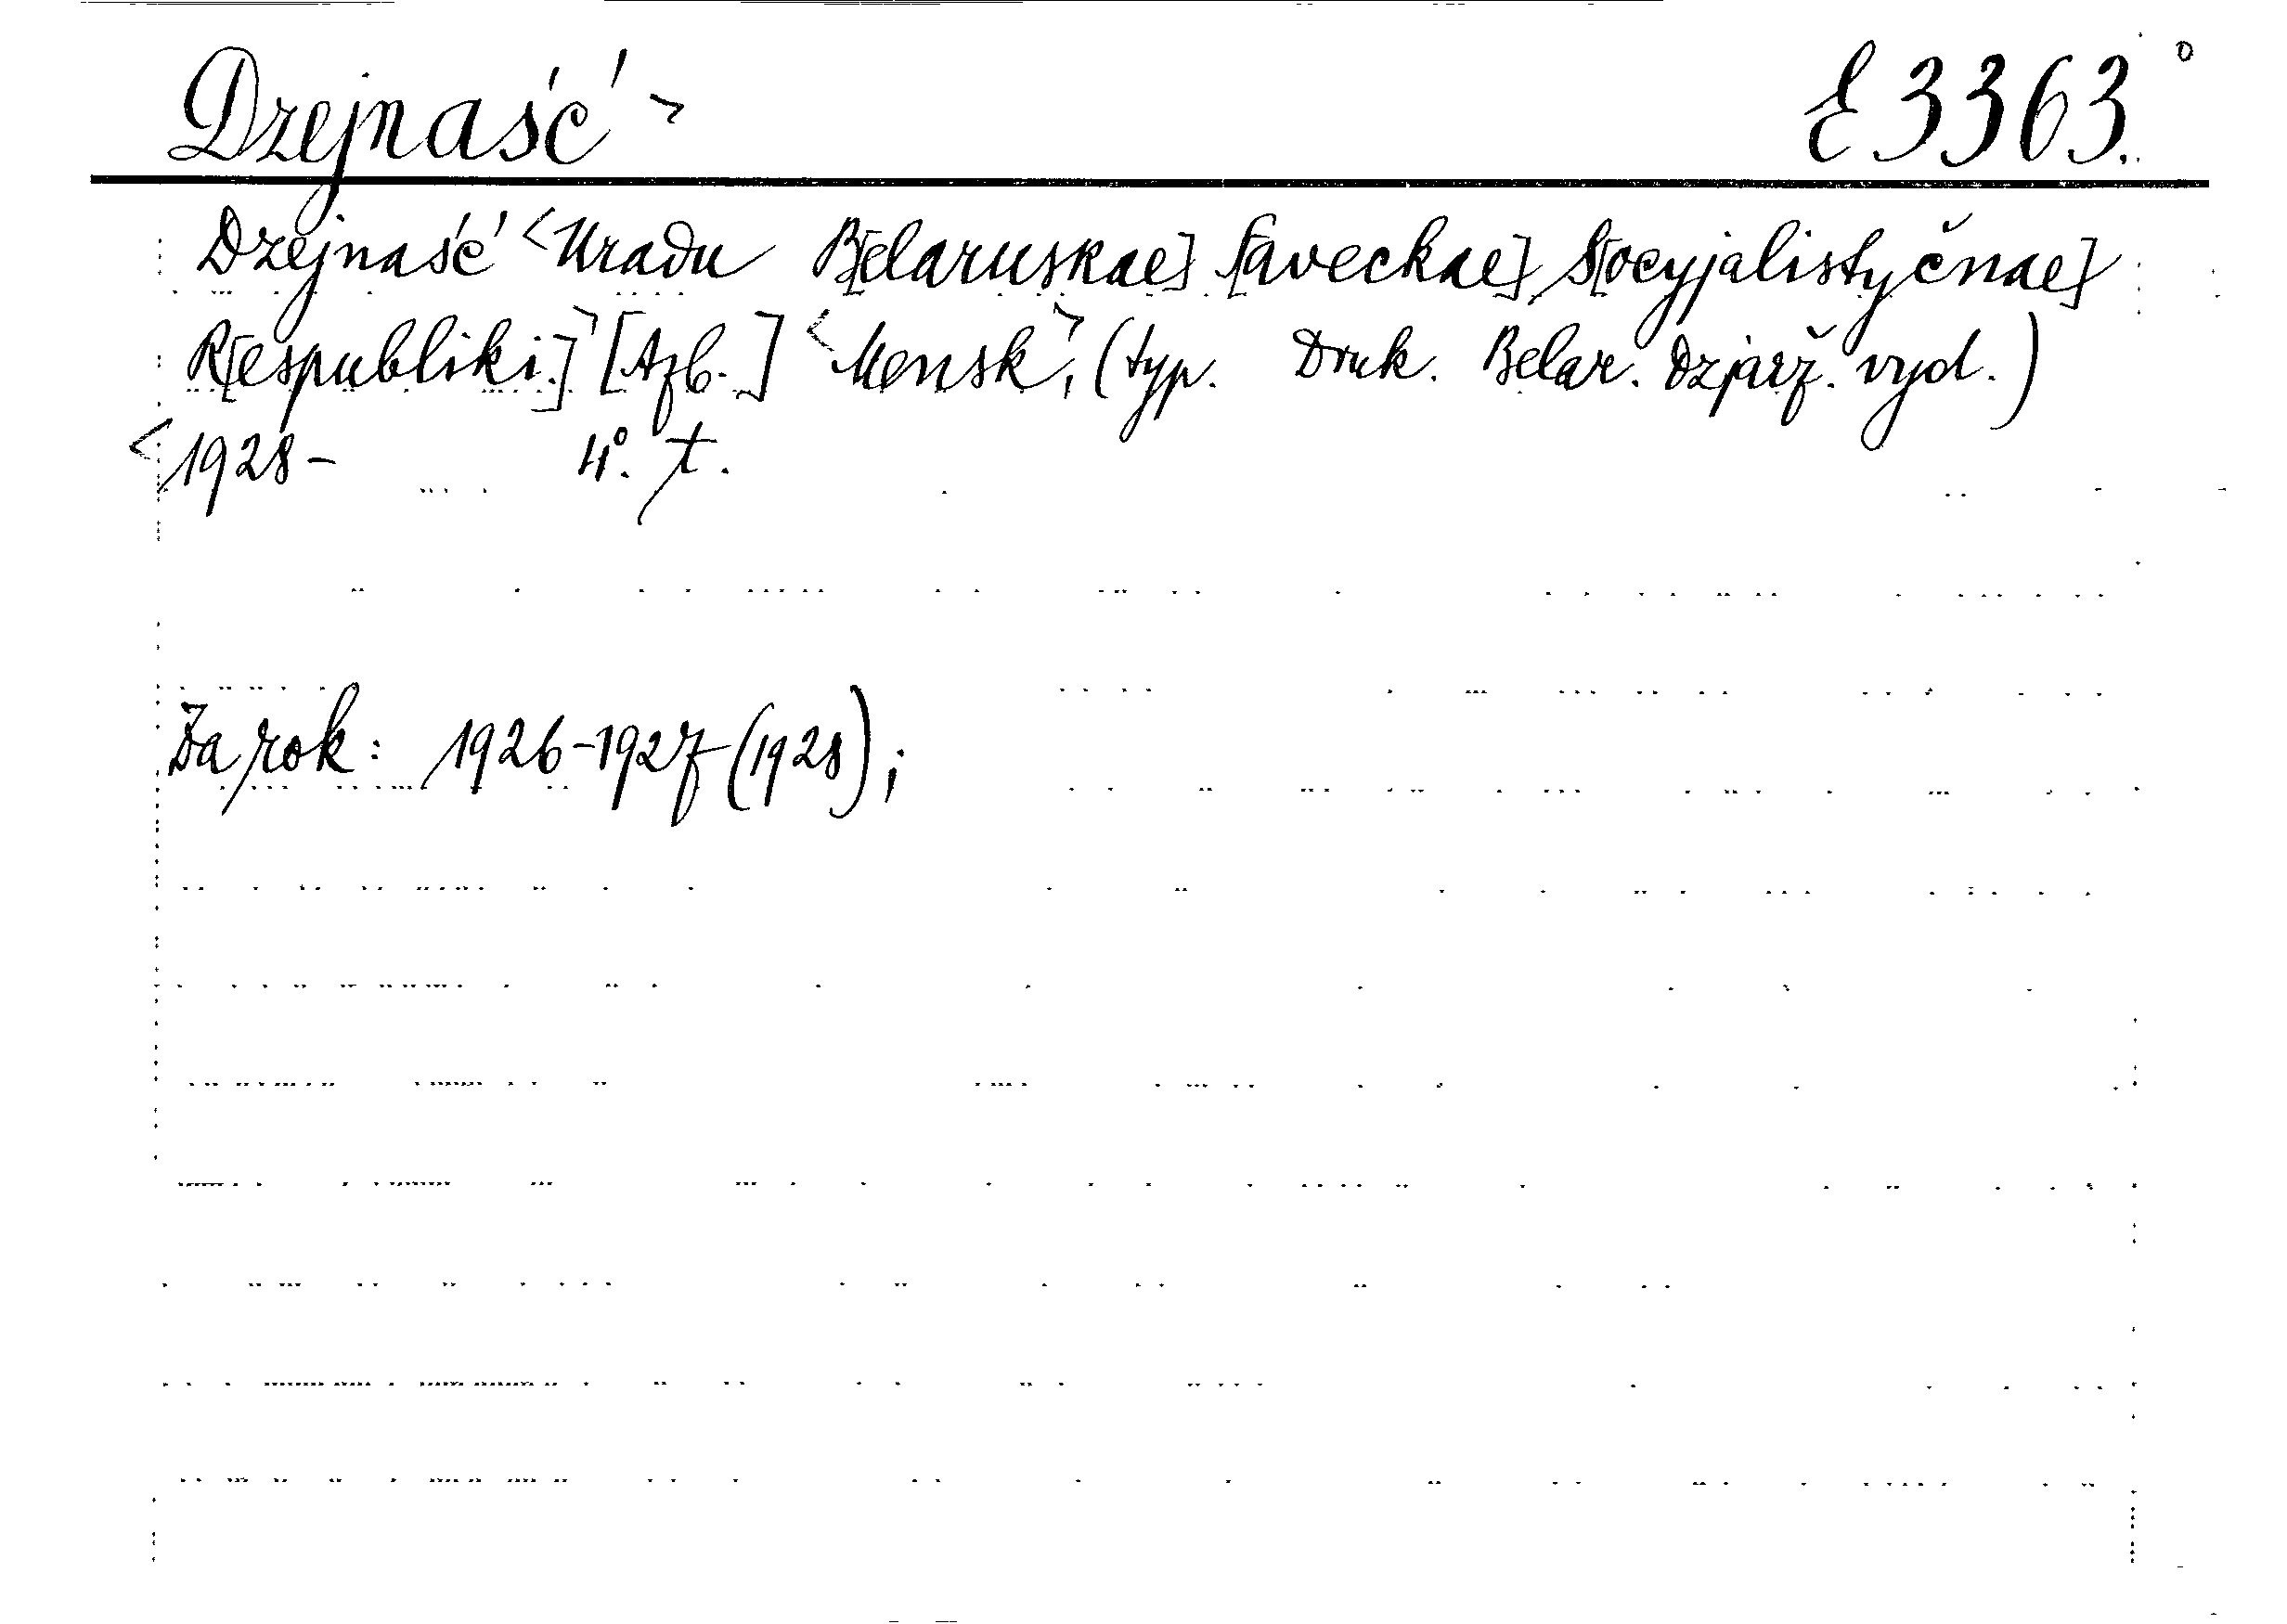 Dzejnaść ~ E 3363.°
Dzejnaść <Uradu B[elaruskae] S[aveckae] S[ocyjalistyčnae]
R[espubliki.]> [Azb.] <Mensk>, (typ. Druk. Belar. Dzjarž. vyd.)
<1928- 4°. t.
Za rok: 1926-1927 (1928);